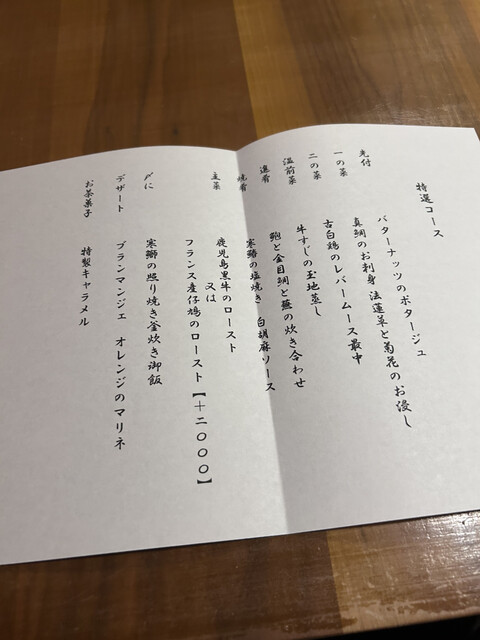 特選コース
先付 バターナッツのポタージュ
一の菜 真鯛のお刺身 法蓮草と菊花のお浸し
二の菜 古白鶏のレバームース最中
温前菜 牛すじの玉地蒸し
進肴 鮑と金目鯛と蕪の炊き合わせ
焼肴 寒鰆の塩焼き 白胡麻ソース
主菜 鹿児島黒牛のロースト
又は
フランス産仔鳩のロースト【+二〇〇〇】
〆に 寒鰤の照り焼き釜炊き御飯
デザート ブランマンジェ オレンジのマリネ
お茶菓子 特製キャラメル